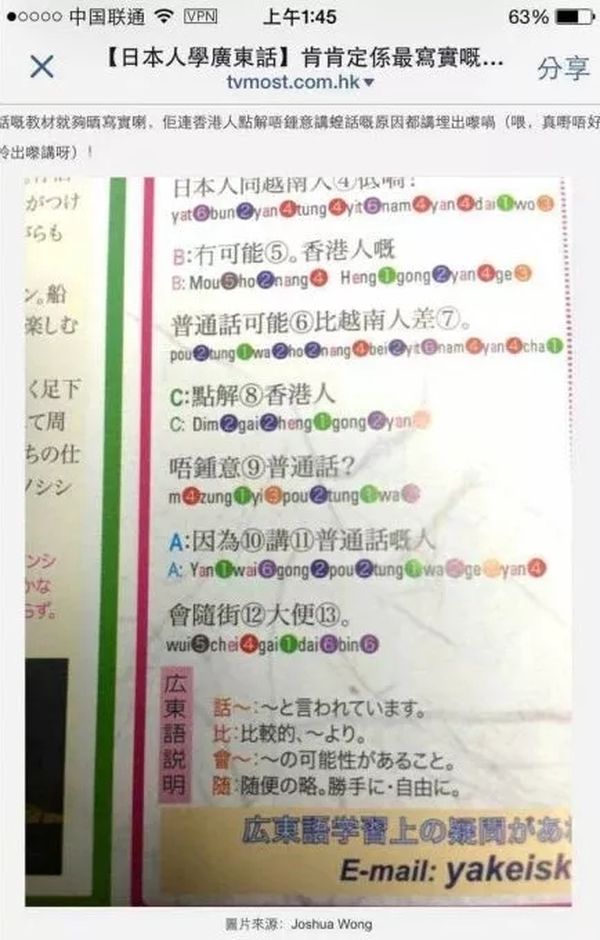 中国联通 VPN 上午1:45 63%
【日本人學廣東話】肯肯定係最寫實嘅...
tvmost.com.hk
分享
話嘅教材就夠晒寫實喇，佢連香港人點解唔鍾意講蝗話嘅原因都講埋出嚟喎（喂，真嘢唔好
拎出嚟講呀）！
がつけ
がらも
日本人同越南人④低喎！
yat6bun2yan4tung4yit6nam4yan4dai1wo3
B:冇可能⑤。香港人嘅
B: Mou5ho2nang4 Heng1gong2yan4ge3
ン。船
楽しむ
普通話可能⑥比越南人差⑦。
pou2tung1wa2ho2nang4bei2yit6nam4yan4cha1
く足下
て周
ちの仕
ノシシ
C:點解⑧香港人
C: Dim2gai2heng1gong2yan
唔鍾意⑨普通話？
m4zung1yi3pou2tung1wa2
ンシ
かな
らず。
A:因為⑩講⑪普通話嘅人
A: Yan1wai6gong2pou2tung1wa2ge3yan4
會隨街⑫大便⑬。
wui5chei4gai1dai6bin6
広東語説明
話～:～と言われています。
比:比較的、～より。
會～:～の可能性があること。
随:随便の略。勝手に・自由に。
広東語学習上の疑問があ
E-mail: yakeisk
圖片來源：Joshua Wong